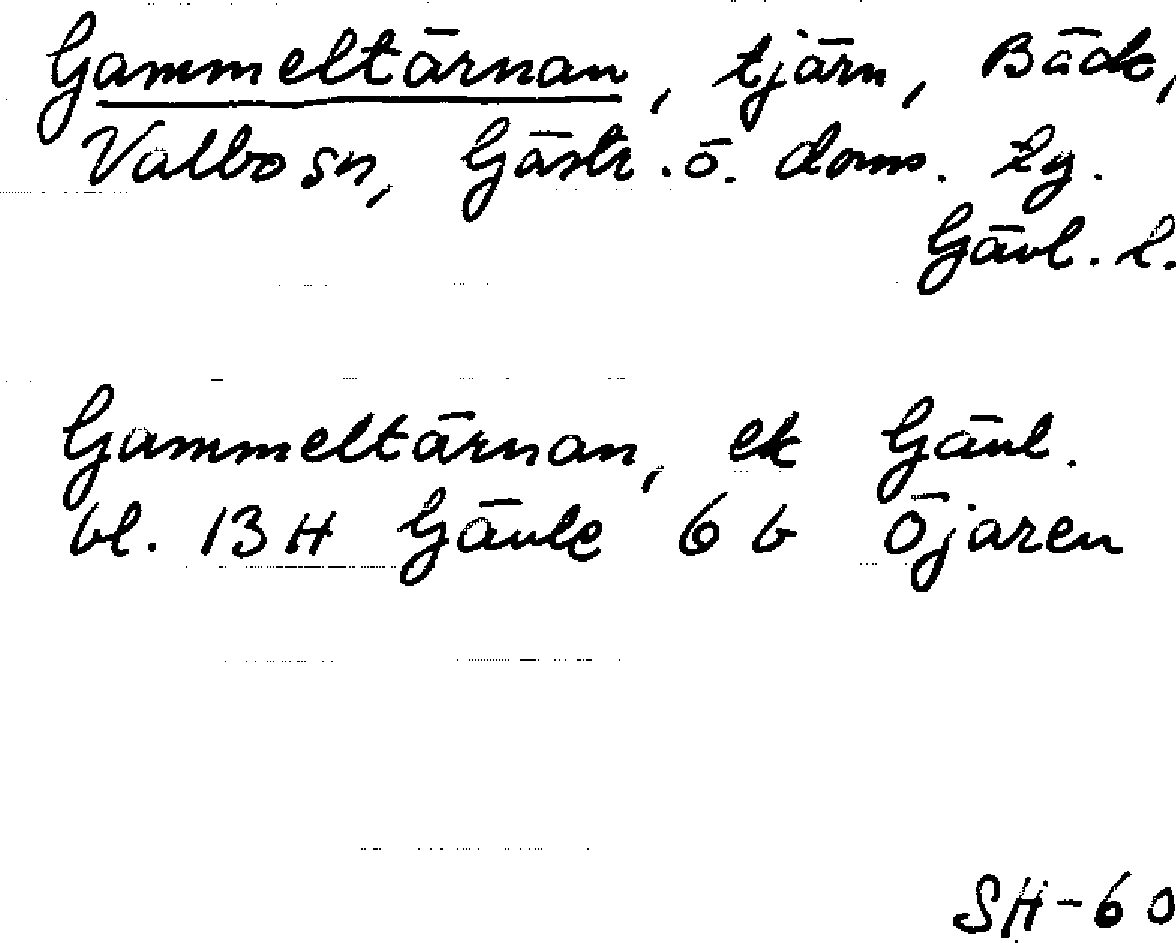 Gammeltärnan, tjärn, Bäck,
Valbo sn, Gästr. ö. doms. tg.
Gävl. l.
Gammeltärnan, ek Gävl.
bl. 13 H Gävle 6 b Öjaren
SH-60